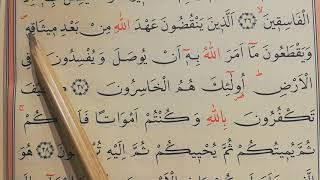 الْفَاسِقِينَۙ ﴿٢٦﴾ اَلَّذِينَ يَنْقُضُونَ عَهْدَ اللّٰهِ مِنْ بَعْدِ مِيثَاقِهِۖ
وَيَقْطَعُونَ مَٓا اَمَرَ اللّٰهُ بِهِٓ اَنْ يُوصَلَ وَيُفْسِدُونَ فِي
الْاَرْضِۜ اُو۬لٰٓئِكَ هُمُ الْخَاسِرُونَ ﴿٢٧﴾
تَكْفُرُونَ بِاللّٰهِ وَكُنْتُمْ اَمْوَاتًا فَاَحْيَاكُمْۚ
ثُمَّ يُمِيتُكُمْ ثُمَّ يُحْيِيكُمْ ثُمَّ اِلَيْهِ تُرْجَعُونَ ﴿٢٨﴾ هُوَ